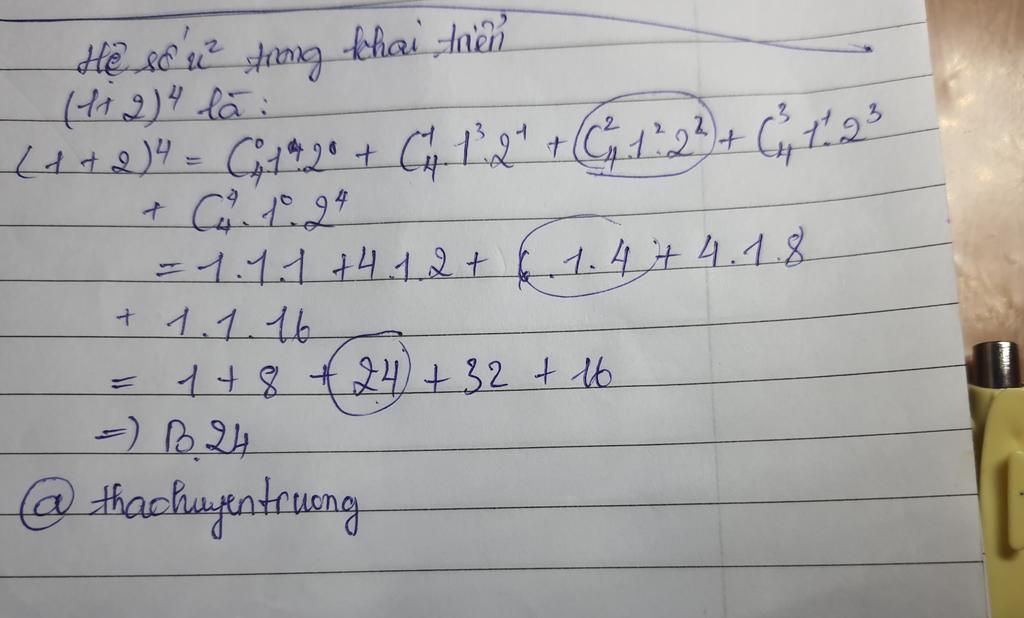 Hệ số x² trong khai triển
(1+2)⁴ là:
(1+2)⁴ = C₄⁰ 1⁴.2⁰ + C₄¹.1³.2¹ + C₄².1².2² + C₄³ 1¹.2³
+ C₄⁴.1⁰.2⁴
= 1.1.1 + 4.1.2 + 6.1.4 + 4.1.8
+ 1.1.16
= 1 + 8 + 24 + 32 + 16
=) B.24
@ thachuyentruong